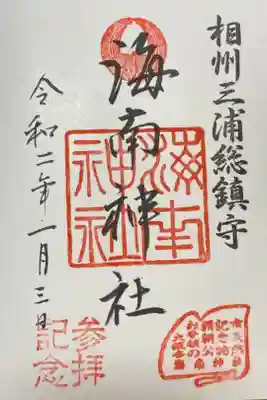 相州三浦総鎮守
海南神社
海南神社
令和二年一月三日
参拝
記念